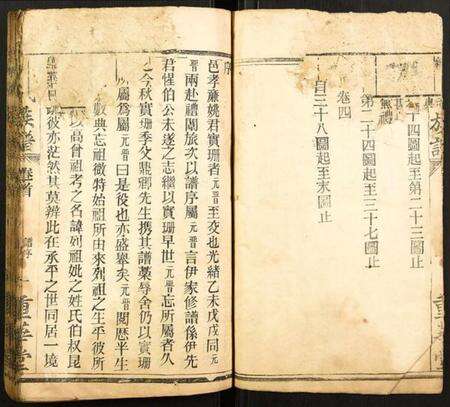 族譜
重華堂
十四圖起至第二十三圖止
第二十四圖起至三十七圖止
卷四
自三十八圖起至末圖止
序
邑孝廉姚君實珊者元晉至交也光緒乙未戊戌同元
晉兩赴禮闈旅次以譜序屬元晉言伊家修譜係伊先
君惺伯公未遂之志繼以實珊早世元晉忘所屬者久
之今秋實珊季父鼎卿先生携其譜藁辱舍仍以實珊
屬為屬元晉曰是役也亦盛舉矣元晉閱歷半生
數典忘祖微特始祖所由來列祖之生平彼所
以高曾祖考之名諱列祖妣之姓氏伯叔昆
彼亦茫然其莫辨此在承平之世同居一境
族譜
卷首
譜序
一
重華堂